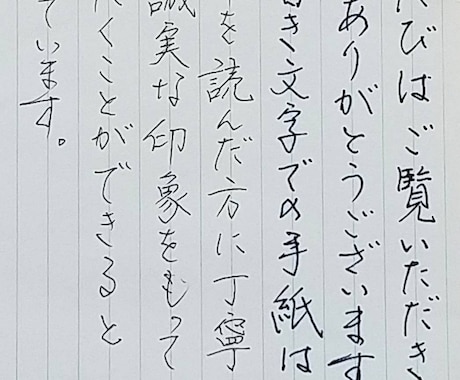 たびはご覧いただき
ありがとうございます
書き文字での手紙は
を読んだ方に丁寧
誠実な印象をもって
くことができると
ています。